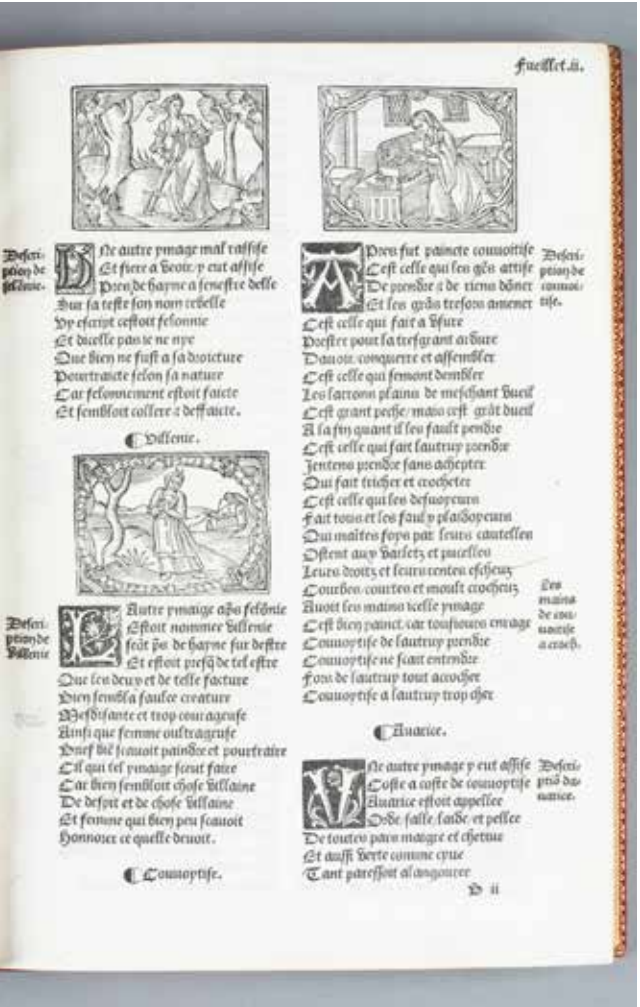 Fueillet.ii.
Descri-
ption de
felonie.
Ne autre ymage mal rassise
Et fiere a veoir y eut assise
Pres de hayne a senestre delle
Sur sa teste son nom rebelle
Vy escript cestoit felonnie
Et dicelle pas ie ne nye
Que bien ne fust a sa droicture
Pourtraicte selon sa nature
Car felonnement estoit faicte
Et sembloit collere & deffaicte.
Villenie.
Descri-
ption de
Villenie
LAutre ymaige aps felonie
Estoit nommee villenie
Et estoit presq de tel estre
Que les deux et de telle facture
Bien sembla faulce creature
Mesdisante et trop courageuse
Ainsi que femme oultrageuse
Brief bie scauoit paindre et pourtraire
Cil qui tel ymaige sceut faire
Car bien sembloit chose villaine
De despit et de chose villaine
Et femme qui bien peu scauoit
Honnorer ce quelle deuoit.
Couuoytise.
APres fut paincte couuoitise
Cest celle qui les gens attise
De prendre & de riens doner
Et les gras tresors amener
Descri-
ption de
couuoi-
tise.
Cest celle qui fait a vsure
Prester pour la tresgrant ardure
Dauoir conquerre et assembler
Cest celle qui semont dembler
Les larrons plains de meschant vueil
Cest grant peche/mais cest grat dueil
A la fin quant il les fault pendre
Cest celle qui fait lautruy prendre
Jentens prendre sans achepter
Qui fait tricher et crocheter
Cest celle qui les desuoyeurs
Fait tous et les faulx plaidoyeurs
Qui maites foys par leurs cautelles
Ostent aux varletz et pucelles
Leurs droitz et leurs rentes escheuz
Courbes courtes et moult crocheuz
Auoit les mains icelle ymage
Cest bien painct car tousiours enrage
Couuoytise de lautruy prendre
Couuoytise ne scait entendre
Fors de lautruy tout accrocher
Couuoytise a lautruy trop cher
Les
mains
de cou-
uoitise
a croch.
Auarice.
VNe autre ymage y eut assise
Coste a coste de couuoytise
Auarice estoit appellee
Orde salle laide et pellee
Descri-
ptio da-
uarice.
De toutes pars maigre et chetiue
Et aussi verte comme cyue
Tant paressoit alangourer
ii